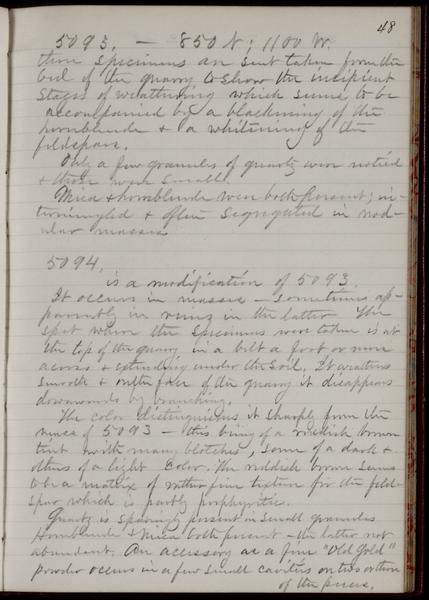 48
5093. — 850 N; 1100 W.
These specimens are sent taken from the
bed of the quarry to show the incipient
stages of weathering which seems to be
accompanied by a blackening of the
hornblende & a whitening of the
feldspars.
Only a few granules of quartz were noticed
& those were small.
Mica & hornblende were both present; in-
termingled & often segregated in nod-
ular masses
5094.
is a modification of 5093.
It occurs in masses — sometimes ap-
parently in veins in the latter. The
spot where the specimens were taken is at
the top of the quarry in a belt a foot or more
across & extending under the soil. It weathers
smooth & on the face of the quarry it disappears
downwards by branching.
The color distinguishes it sharply from the
mass of 5093 — this being of a reddish brown
tint with many blotches, some of a dark &
others of a light color. The reddish brown seems
to be a matrix of rather fine texture for the feld-
spar which is partly porphyritic.
Quartz is sparingly present in small granules
Hornblende & Mica both present — the latter not
abundant. An accessory as a fine "Old Gold"
powder occurs in a few small cavities on two or three
of the pieces.